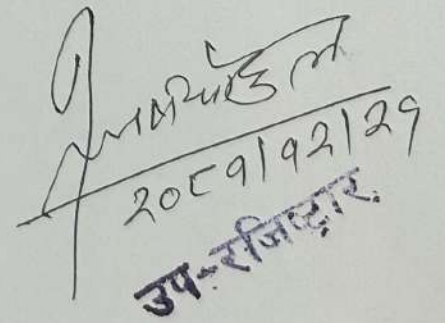 २०८१|१२|२१
उप-रजिष्ट्रार